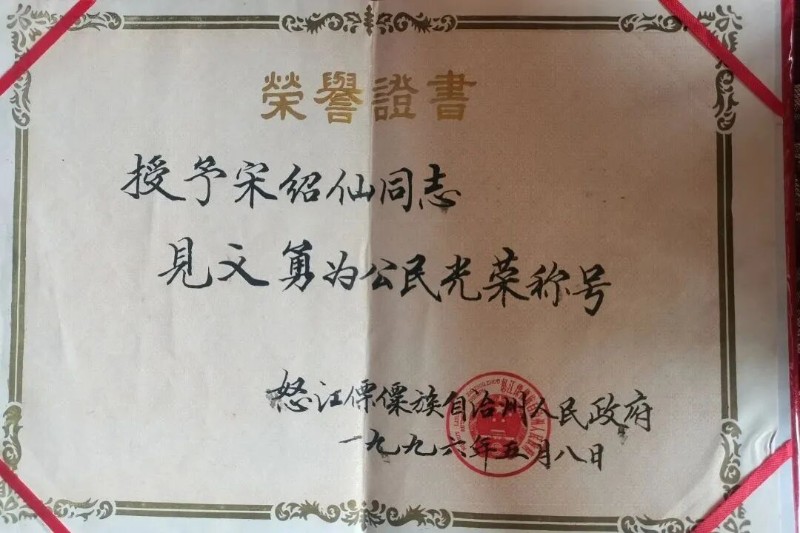 榮譽證書
授予宋绍仙同志
見义勇为公民光荣称号
怒江傈僳族自治州人民政府
一九九六年五月八日